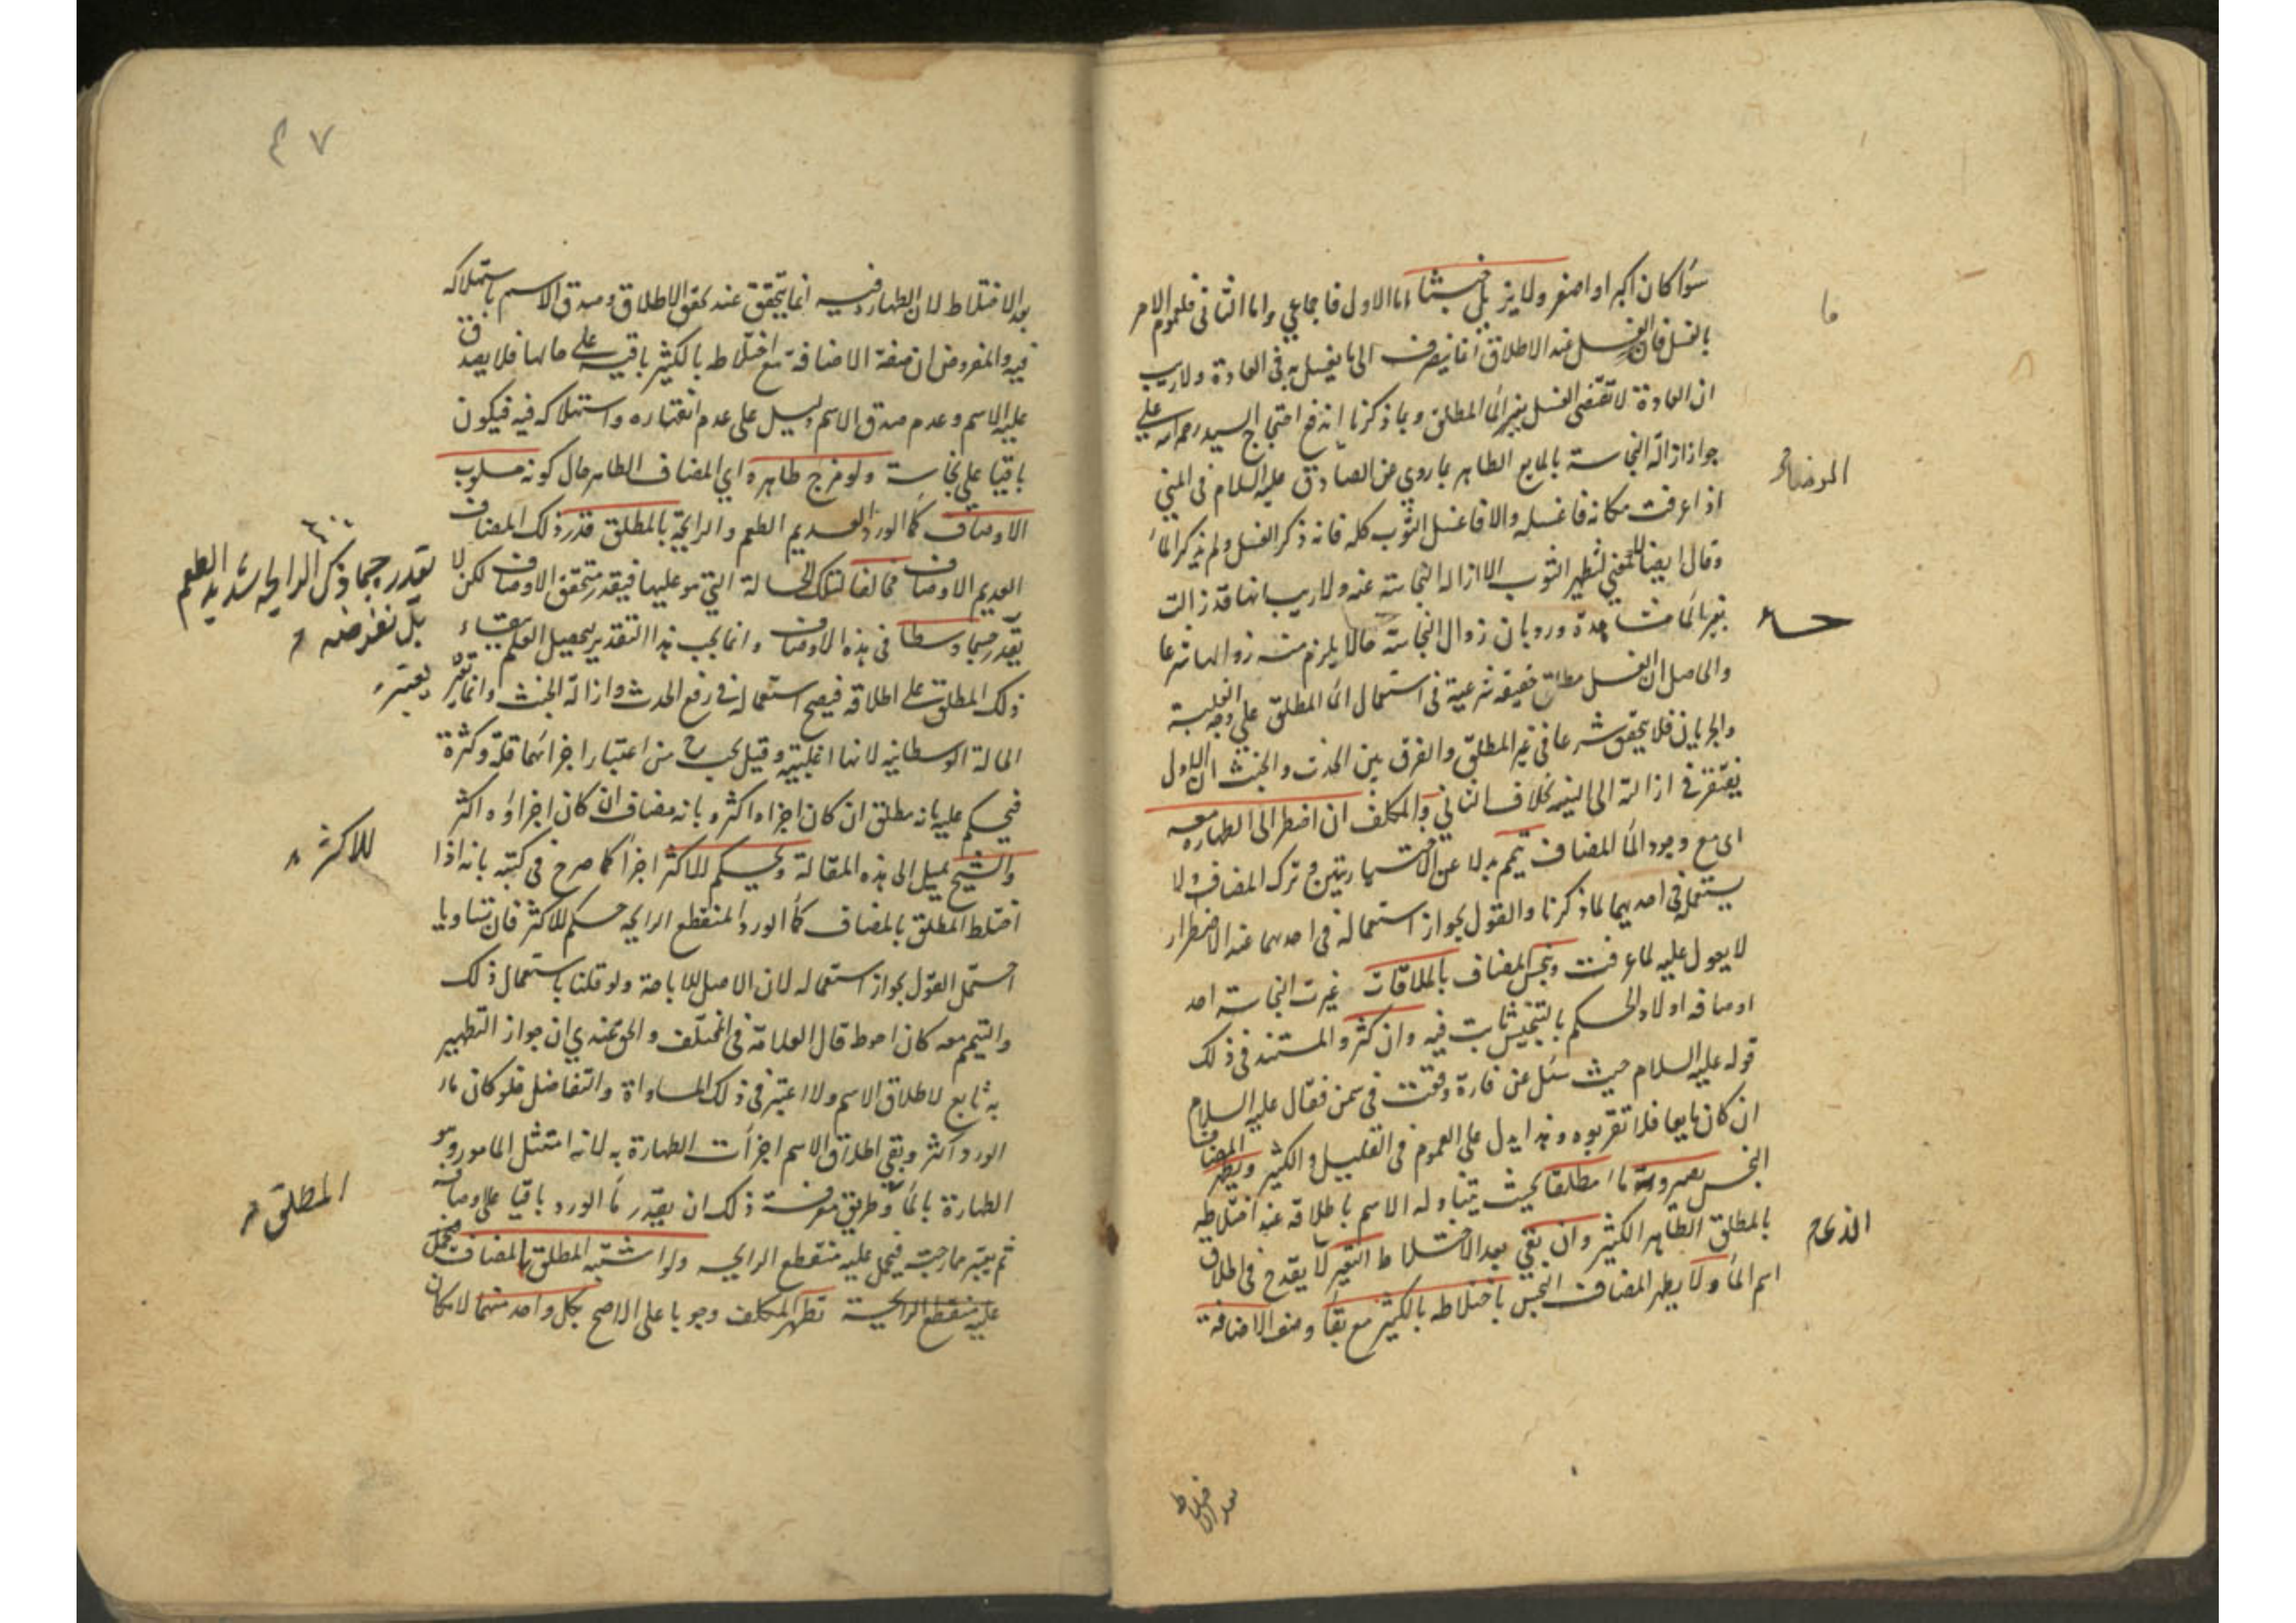 سوٓا كان اكبر او اصغر ولا يزيل خبثا اما الاول فاجماعي واما الثاني فلعموم الامر
بالغسل فان الغسل عند الاطلاق انما ينصرف الى ما يغسل به في العادة ولا ريب
ان العادة لا تقتضي الغسل بغير المآ المطلق وبما ذكرنا اندفع احتجاج السيد رحمه الله علي
جواز ازالة النجاسة بالمايع الطاهر بما روي عن الصادق عليه السلام في المني
اذا عرفت مكانه فاغسله والا فاغسل الثوب كله فانه ذكر الغسل ولم يذكر المآ
وقال ايضا لا معني لتطهير الثوب الا ازاله النجاسة عنه ولا ريب انها قد زالت
بغير المآ مشاهدة ورد بان زوال النجاسة حالا يلزم منه زوالها شرعا
والحاصل ان الغسل مطلق حقيقه شرعية في استعمال المآ المطلق علي وجه الغلبة
والجريان فلا يتحقق شرعا في غير المطلق والفرق بين الحدث والخبث ان الاول
يفتقر في ازالته الى النيه بخلاف الثاني والمكلف ان اضطر الى الطهاره معه
اى مع وجود المآ المضاف تيمم بدلا عن الاختياريتين و ترك المضاف لا
يستعمله في احديهما لما ذكرنا والقول بجواز استعماله في احدهما عند الاضطرار
لا يعول عليه لما عرفت وينجس المضاف بالملاقات غيرت النجاسة احد
اوصافه اولا والحكم بالتنجيس ثابت فيه وان كثر والمستند في ذلك
قوله عليه السلام حيث سئل عن فارة وقعت في سمن فقال عليه السلام
ان كان مايعا فلا تقربوه وهذا يدل على العموم في القليل والكثير ويطهر المضاف
النجس بصيرورته مآ مطلقا بحيث يتناوله الاسم باطلاقه عند اختلاطه
بالمطلق الطاهر الكثير وان بقي بعد الاختلاط التغير لا يقدح في اطلاق
اسم المآ ولا يطهر المضاف النجس باختلاطه بالكثير مع بقآ وصف الاضافة
ما
الذى
بعد الاختلاط
٤٧
بعد الاختلاط لان الطهارة فيه انما يتحقق عند تحقق الاطلاق وصدق الاسم باستهلاكه
فيه والمفروض ان صفة الاضافة مع اختلاطه بالكثير باقية على حالها فلا يصدق
عليه الاسم وعدم صدق الاسم دليل على عدم انغماره واستهلاكه فيه فيكون
باقيا على نجاسته ولو مزج طاهره اي المضاف الطاهر حال كونه مسلوب
الاوصاف كمآ الورد العديم الطعم والرايحة بالمطلق قدر ذلك المضاف
العديم الاوصاف مخالفا لتلك الحالة التي هو عليها فيقدر متحقق الاوصاف لكن لا
يقدر جيدا وسطا في هذه الاوصاف وانما يجب هذا التقدير لتحصيل العلم ببقاء
ذلك المطلق على اطلاقه فيصح استعماله في رفع الحدث وازالة الخبث وانما يعتبر
الحالة الوسطانية لانها اغلبيته وقيل يجب ح من اعتبار اجزائهما قلة وكثرة
فيحكم عليه بانه مطلق ان كان اجزاه اكثر وبانه مضاف ان كان اجزاؤه اكثر
والشيخ يميل الى هذه المقالة ويحكم للاكثر اجزآ كما صرح في كتبه بانه اذا
اختلط المطلق بالمضاف كمآ الورد المنقطع الرايحه حكم للاكثر فان تساويا
احتمل القول بجواز استعماله لان الاصل الاباحة ولو قلنا باستعمال ذلك
والتيمم معه كان احوط قال العلامة في المختلف والحق عندي ان جواز التطهير
به تابع لاطلاق الاسم ولا اعتبر في ذلك المساواة والتفاضل فلو كان مآ
الورد اكثر وبقي اطلاق الاسم اجزأت الطهارة به لانه امتثل المامور وهو
الطهارة بالمآ وطريق معرفة ذلك ان يقدر مآ الورد باقيا على اوصافه
ثم يعتبر ممازجته فيحمل عليه منقطع الرايحه ولو اشتبه المطلق بالمضاف
عليه منقطع الرايحة تطهر المكلف وجوبا على الاصح بكل واحد منهما لامكان
بل نفرضه
يعتبر
للاكثر
المطلق